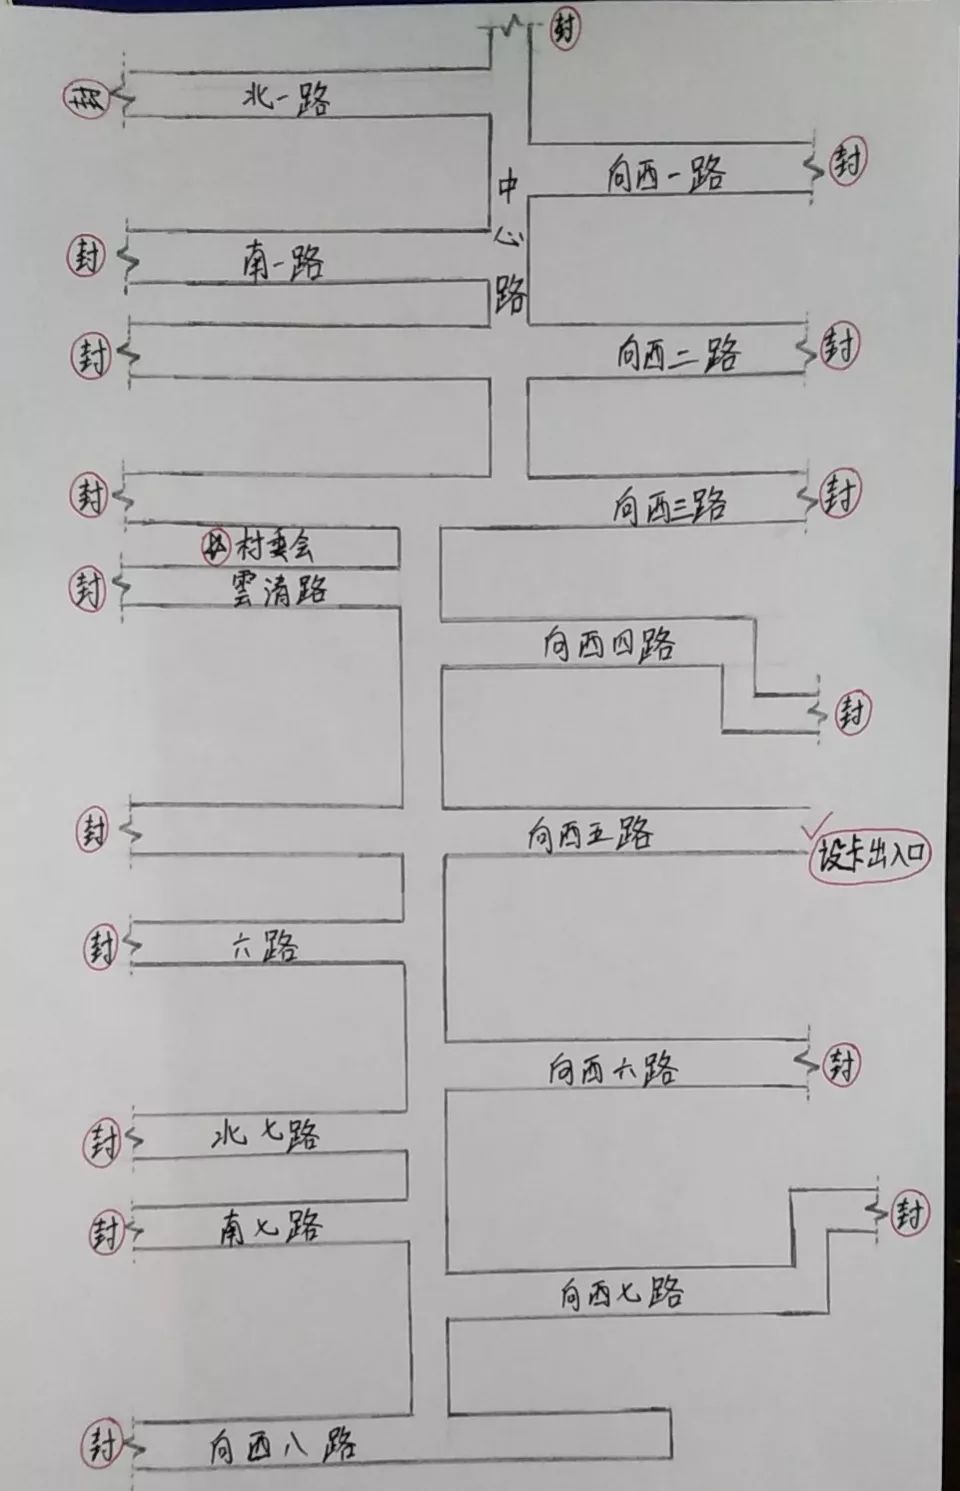 封
北一路
封
中心路
向西一路
封
封
南一路
封
向西二路
封
封
向西三路
封
村委会
封
雲清路
向西四路
封
封
向西五路
设卡出入口
封
六路
向西六路
封
封
北七路
封
南七路
封
向西七路
封
向西八路